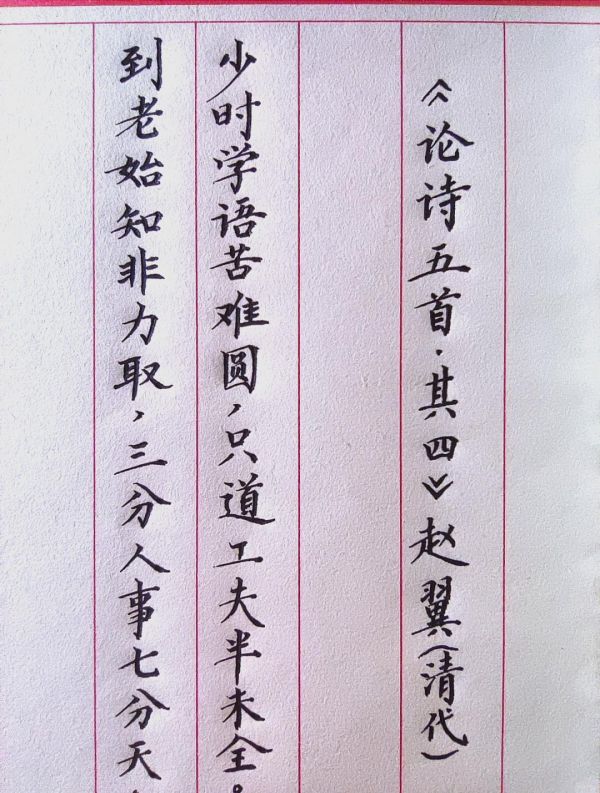 《论诗五首·其四》赵翼(清代)
少时学语苦难圆，只道工夫半未全。
到老始知非力取，三分人事七分天